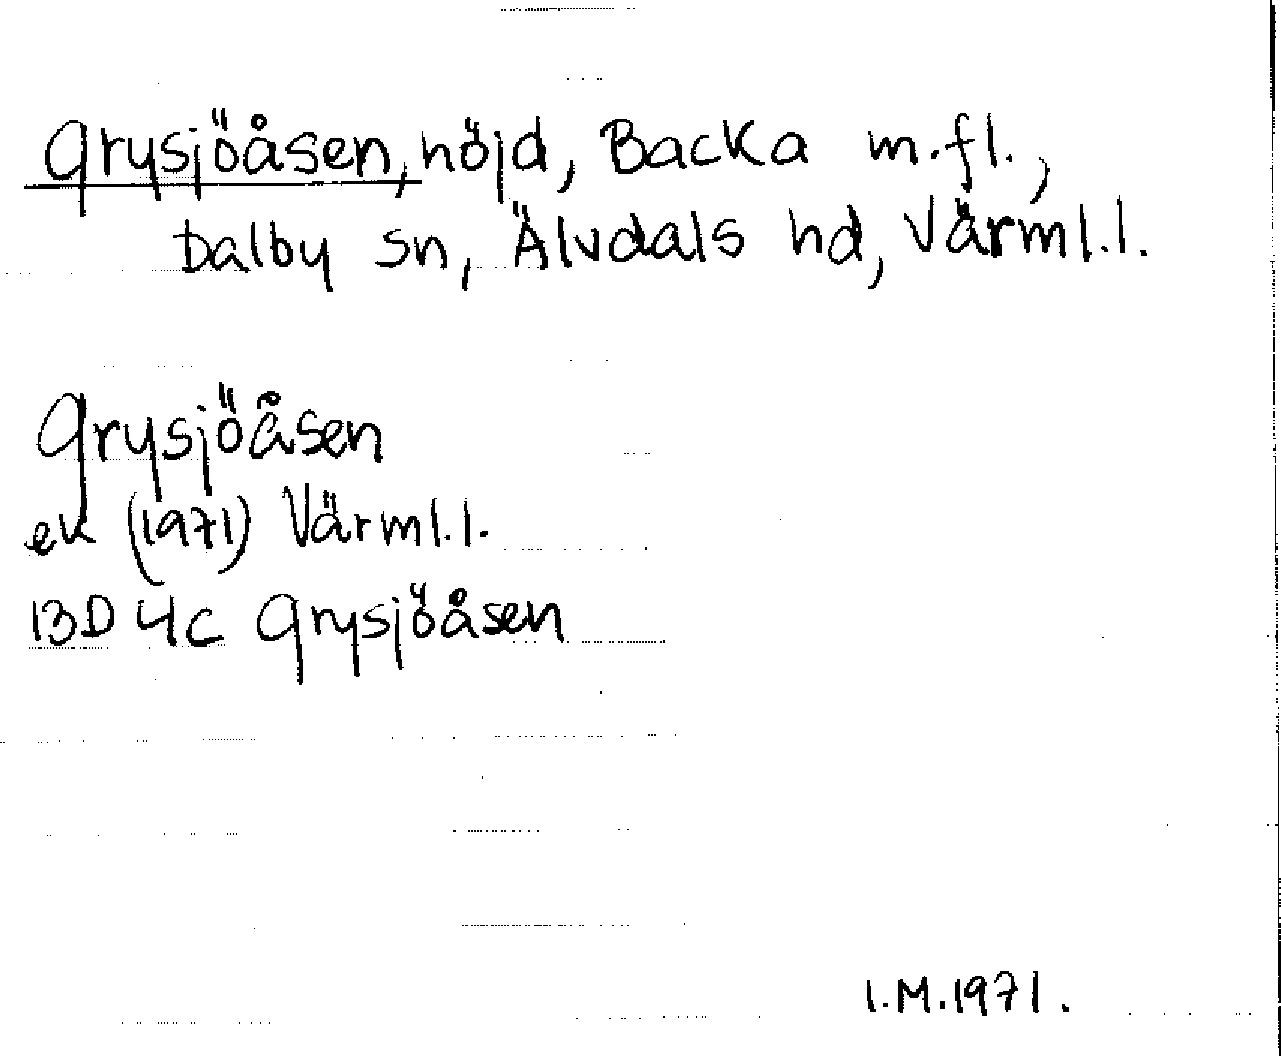 Grysjöåsen, höjd, Backa m.fl.,
Dalby sn, Älvdals hd, Värml.l.
Grysjöåsen
ek (1971) Värml.l.
13D 4c Grysjöåsen
I.M.1971.